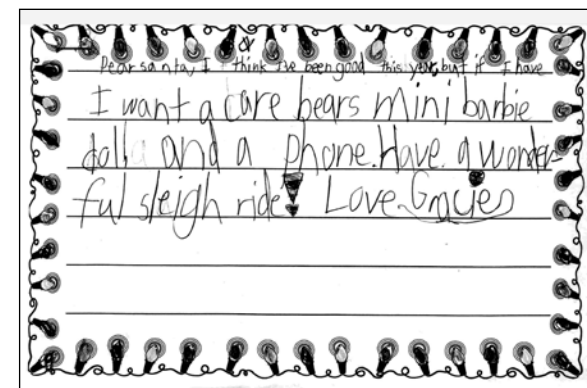 Dear santa, I think I've been good this year, but if I have
I want a care bears mini barbie
doll and a phone. Have a wonder-
ful sleigh ride! Love Gracie